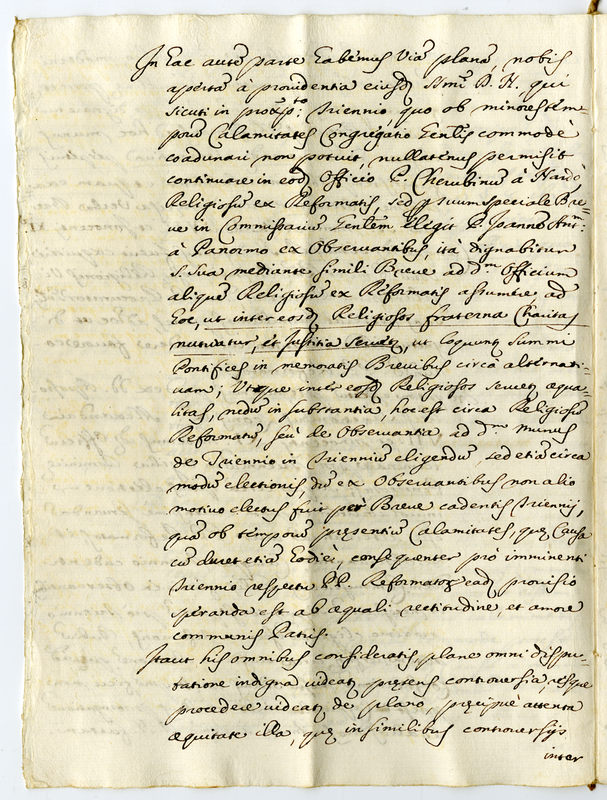 In hac autē parte habemus viā planā, nobis
apertā à prouidentia eiusdē SSmi D. N. qui
sicuti in proxo: triennio, quo ob minores tem=
porū Calamitates Congregatio Gentlis commodè
coadunari non potuit, nullatenus permisit
continuare in eodē Officio P. Cherubinū à Nardò,
Religiosū ex Reformatis, sed p suum speciale Bre=
ve in Commissariū Gentlem elegit P. Joannē Antm:
à Panormo ex Observantibus, ità dignabitur
S. Sua mediante simili Breve ad dm Officium
aliquē Religiosū ex Reformatis assumere, ad
hoc, ut inter eosdē Religiosos fraterna Charitas
nutriatur, et Justitia servetr, ut loquuntr Summi
Pontifices in memoratis Brevibus circà alternati=
vam; Utque inter eosdē Religiosos servetr æqua=
litas, nedū in substantia, hoc est circa Religiosū
Reformatū, seù de Observantia ad dm munus
de Triennio in triennium eligendū, sed etiā circa
modū electionis, dū ex Observantibus non alio
motivo electus fuit per Breve cadentis triennij,
quā ob temporū præsentiū Calamitates, quæ Causa
cū duret etiā hodiè, consequenter prò imminenti
triennio respectu PP. Reformatoȝ eadē provisio
speranda est ab æquali rectitudine, et amore
communis Patris.
Itaut his omnibus consideratis, plane omni dispu=
tatione indigna videatr præsens controversia, resque
procedere videatr de plano, præcipuè attenta
æquitate illa, quæ in similibus controversijs
inter